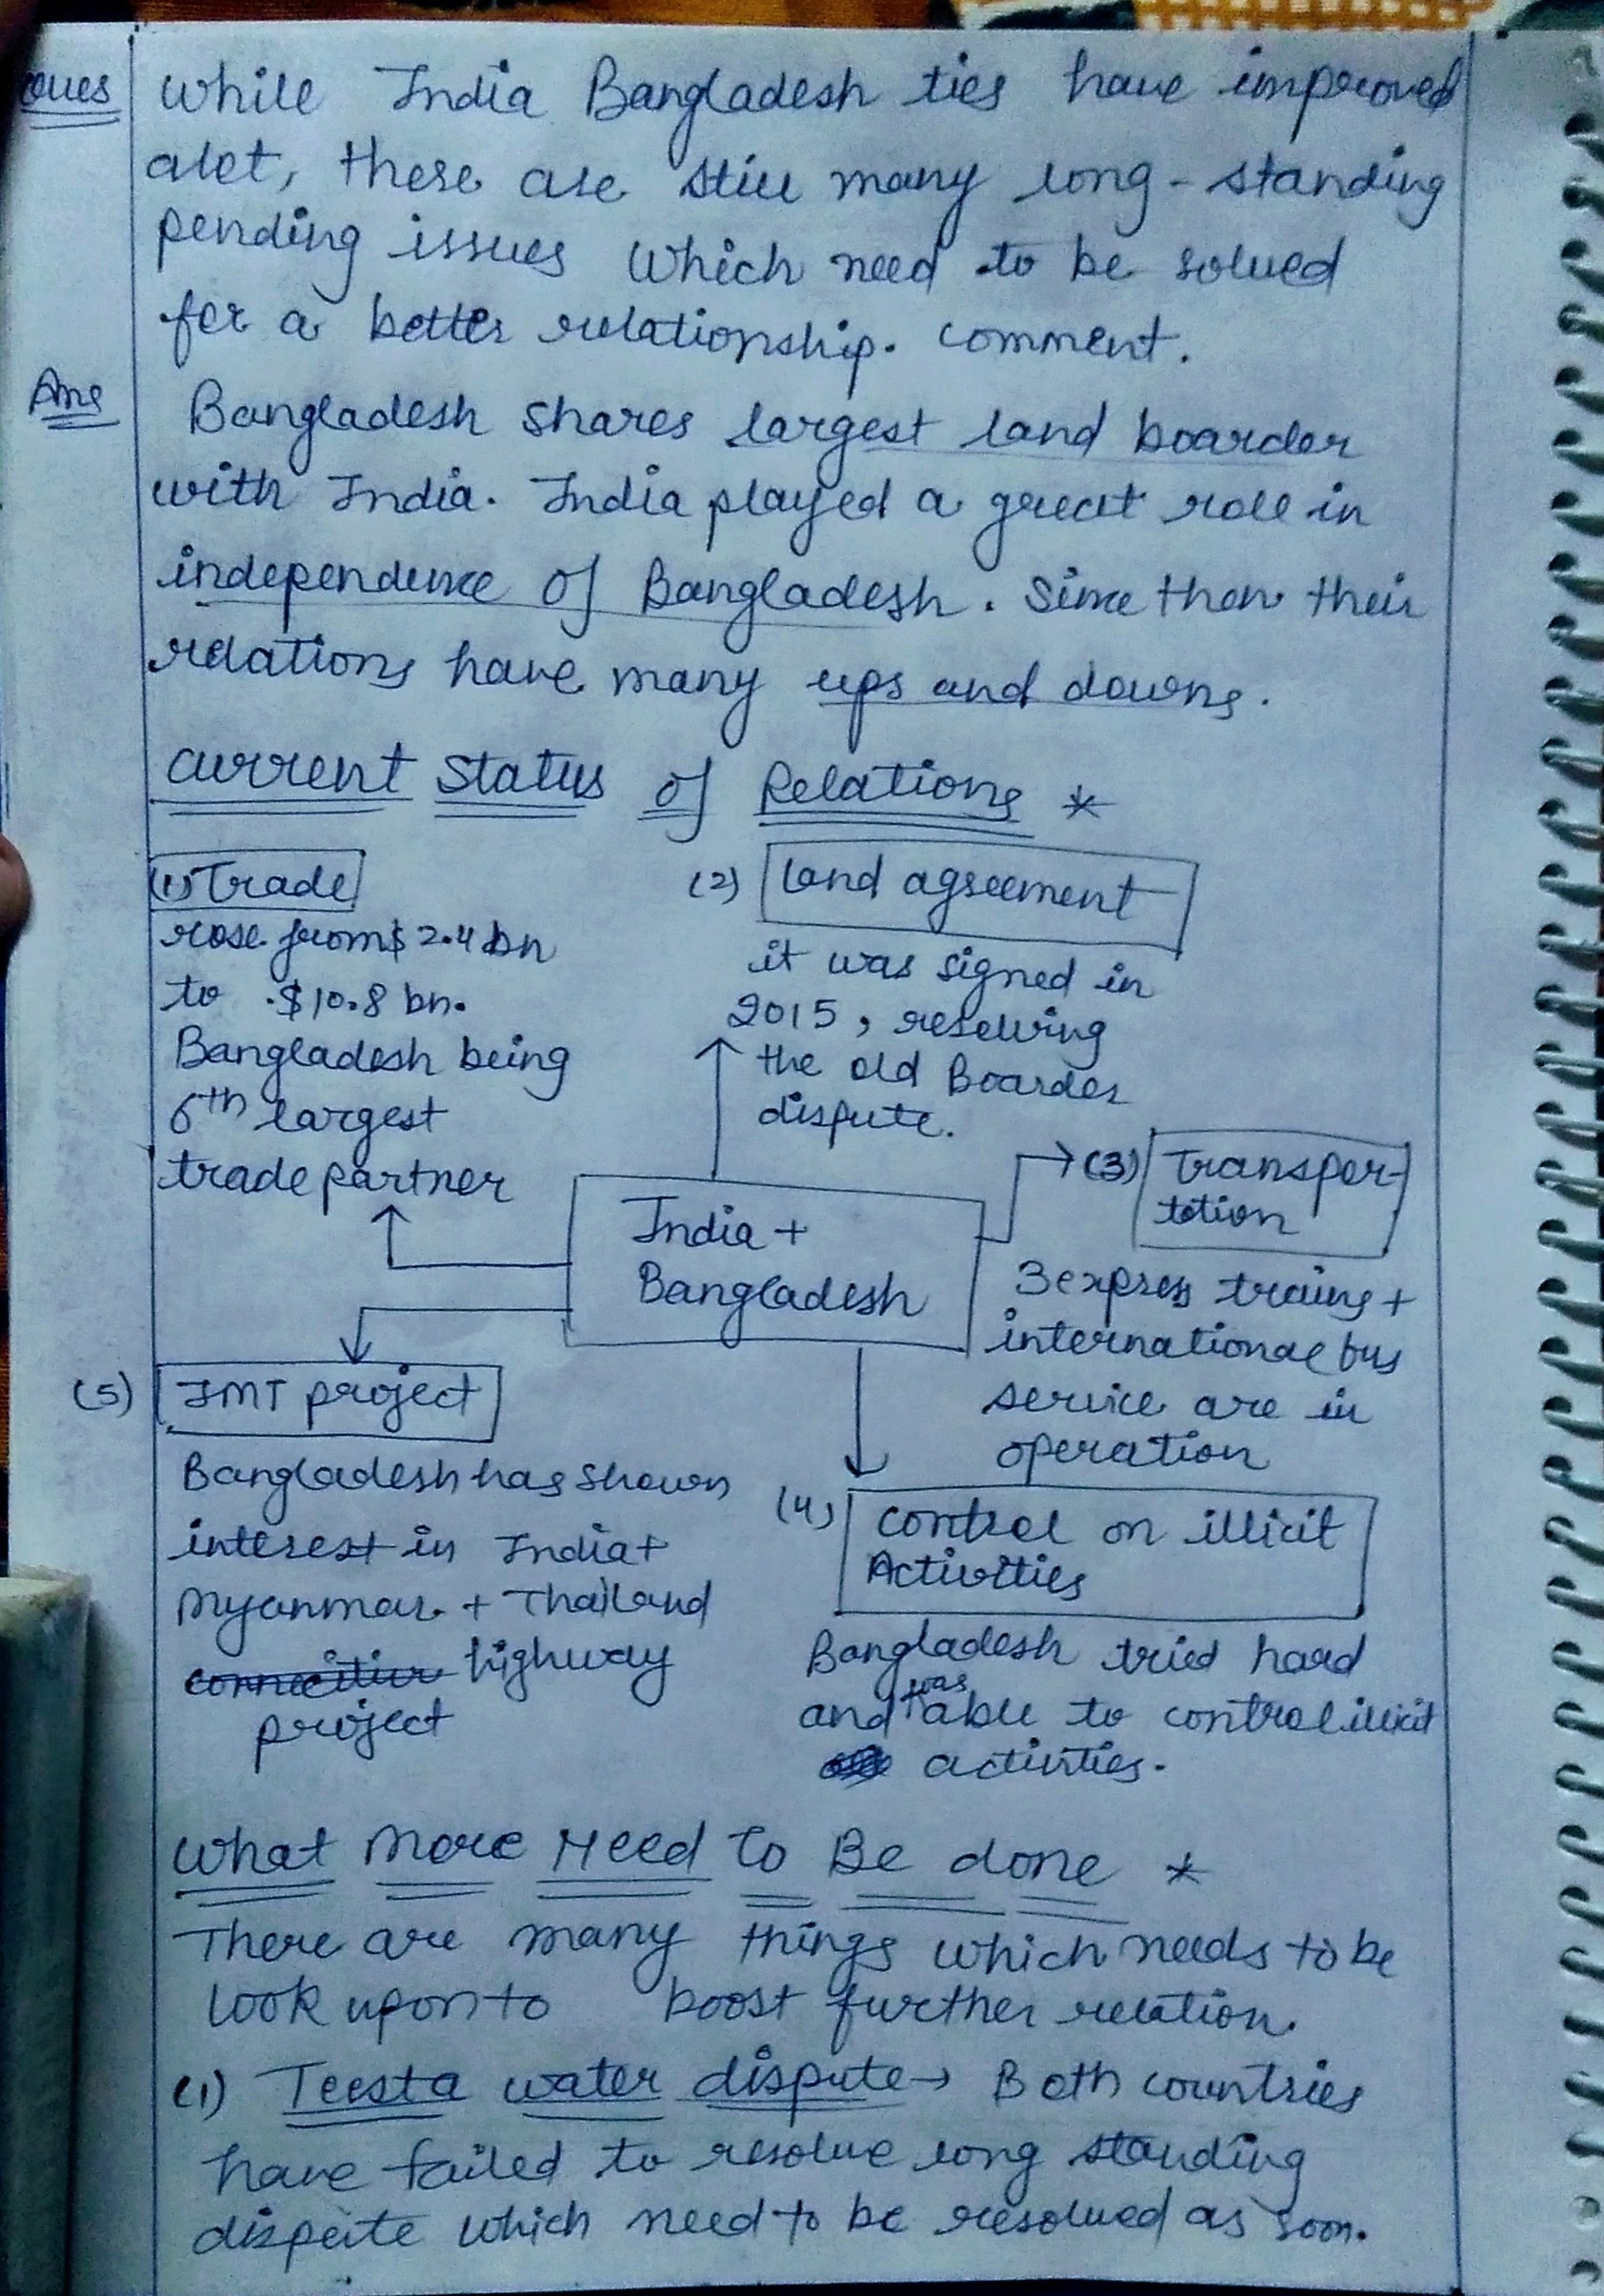 Ques while India Bangladesh ties have improved
alot, there are still many long-standing
pending issues which need to be solved
for a better relationship. comment.
Ans Bangladesh shares largest land boarder
with India. India played a great role in
independence of Bangladesh. Since then their
relations have many ups and downs.
Current Status of Relations *
(1) Trade
rose from $ 2.4 bn
to $10.8 bn.
Bangladesh being
6th largest
trade partner
(2) Land agreement
it was signed in
2015, resolving
the old Boarder
dispute.
India +
Bangladesh
(3) Transpor-
tation
3 express trains +
international bus
service are in
operation
(5) IMT project
Bangladesh has shown
interest in India +
Myanmar + Thailand
highway
project
(4) control on illicit
Activities
Bangladesh tried hard
and was able to control illicit
activities.
What More Need To Be done *
There are many things which needs to be
look upon to boost further relation.
(1) Teesta water dispute → Both countries
have failed to resolve long standing
dispute which need to be resolved as soon.